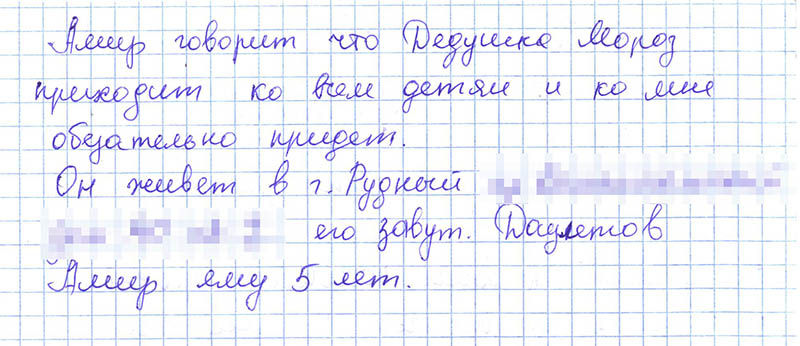 Амир говорит что Дедушка Мороз
приходит ко всем детям и ко мне
обезательно придет.
Он живет в г. Рудный
его зовут. Даулетов
Амир ему 5 лет.